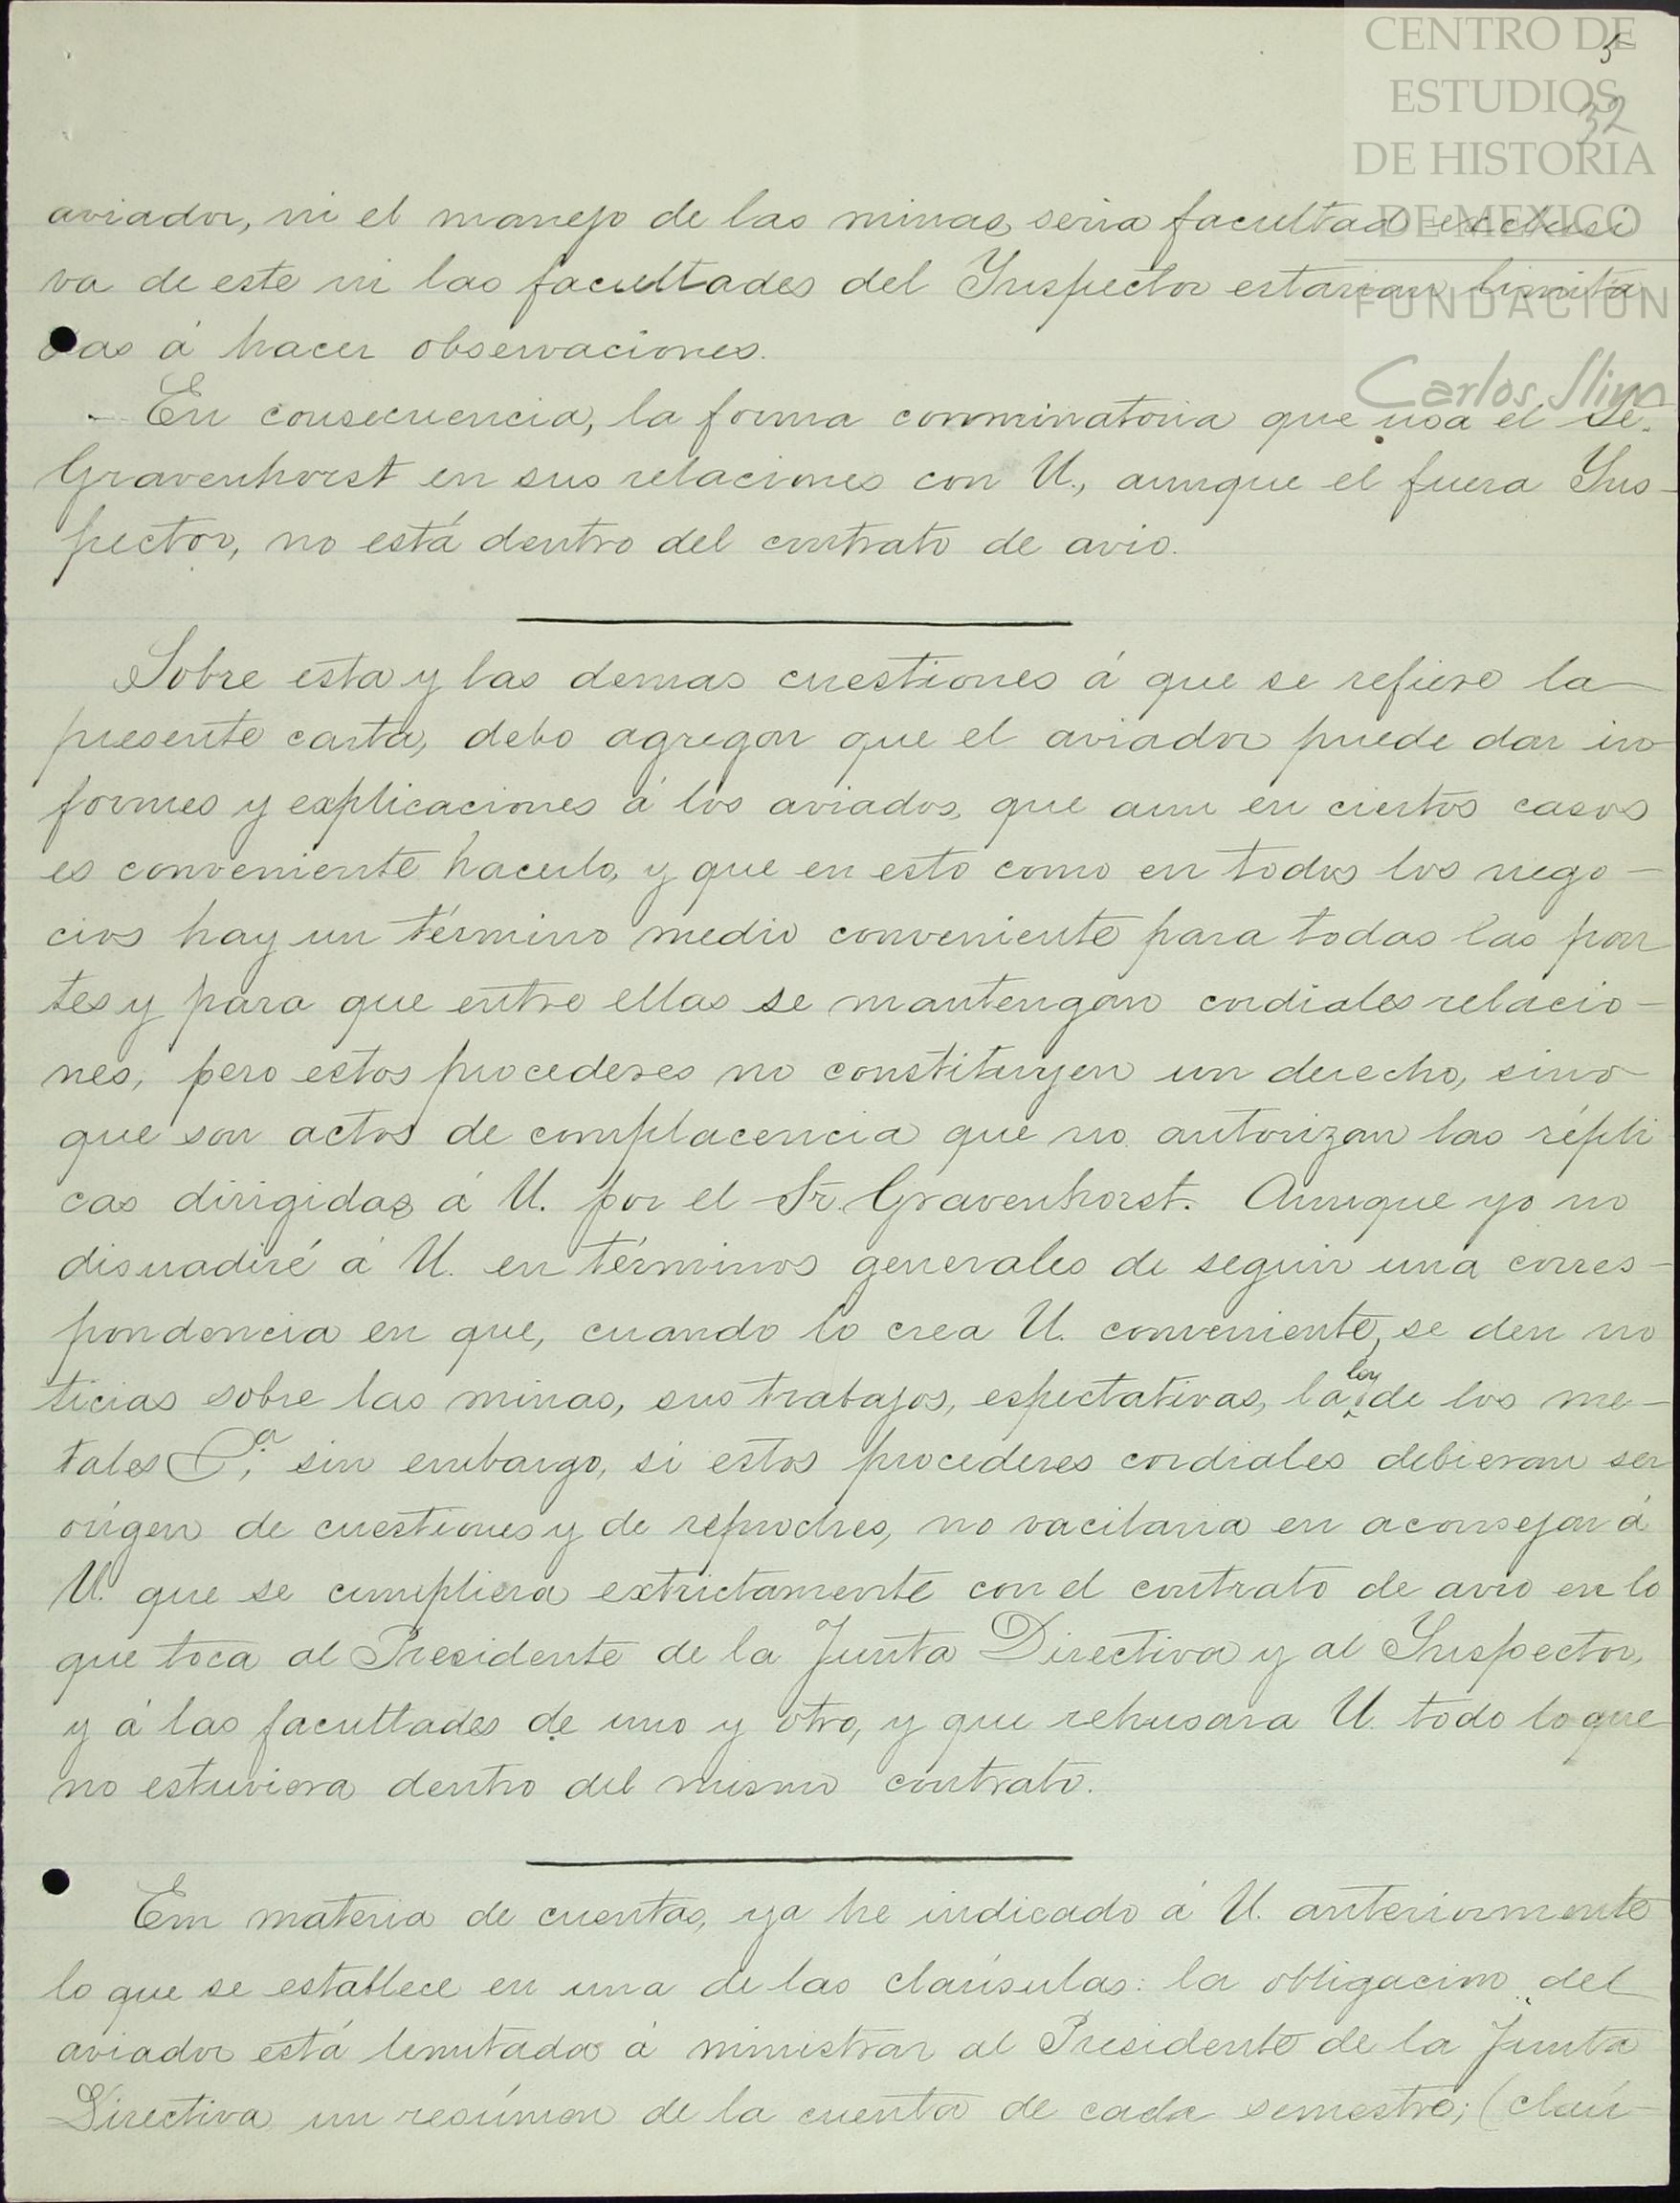 CENTRO DE
ESTUDIOS
DE HISTORIA
DE MEXICO
FUNDACIÓN
Carlos Slim
5
32
aviador, ni el manejo de las minas, seria facultad exclusi
va de este ni las facultades del Inspector estarian limita
das á hacer observaciones.
- En consecuencia, la forma conminatoria que usa el Sr.
Gravenhorst en sus relaciones con U., aunque el fuera Ins-
pector, no está dentro del contrato de avio.
Sobre esta y las demas cuestiones á que se refiere la
presente carta, debo agregar que el aviador puede dar in
formes y explicaciones á los aviados, que aun en ciertos casos
es conveniente hacerlo, y que en esto como en todos los nego-
cios hay un término medio conveniente para todas las par
tes y para que entre ellas se mantengan cordiales relacio-
nes, pero estos procederes no constituyen un derecho, sino
que son actos de complacencia que no autorizan las répli
cas dirigidas á U. por el Sr. Gravenhorst. Aunque yo no
disuadiré á U. en términos generales de seguir una corres-
pondencia en que, cuando lo crea U. conveniente, se den no
ticias sobre las minas, sus trabajos, espectativas, la ley de los me-
tales &.ª, sin embargo, si estos procederes cordiales debieran ser
orígen de cuestiones y de reproches, no vacilaria en aconsejar á
U. que se cumpliera extrictamente con el contrato de avio en lo
que toca al Presidente de la Junta Directiva y al Inspector,
y á las facultades de uno y otro, y que rehusara U. todo lo que
no estuviera dentro del mismo contrato.
Em materia de cuentas, ya he indicado á U. anteriormente
lo que se establece en una de las claúsulas: la obligacion del
aviador está limitada á ministrar al Presidente de la Junta
Directiva un resúmen de la cuenta de cada semestre; (claú-